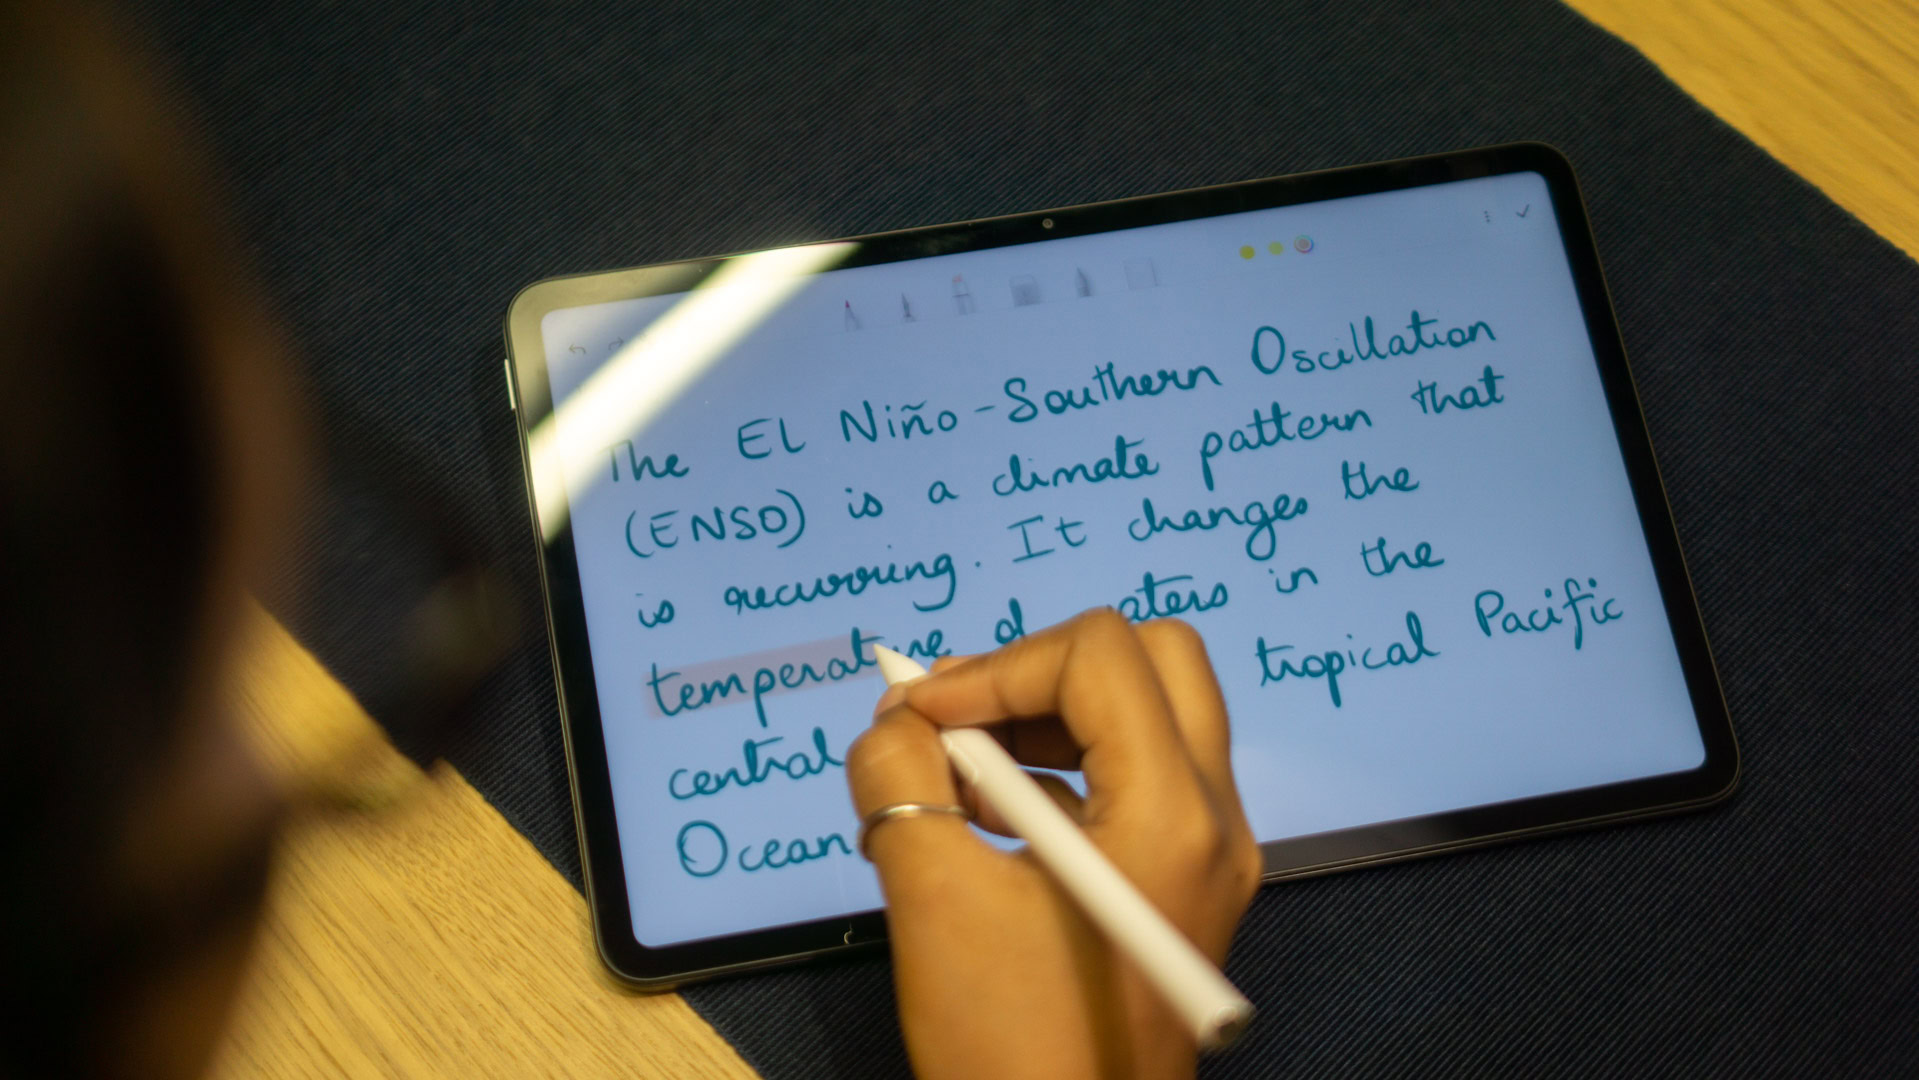 The EL Niño-Southern Oscillation
(ENSO) is a climate pattern that
is recurring. It changes the
temperature in the
central tropical Pacific
Ocean